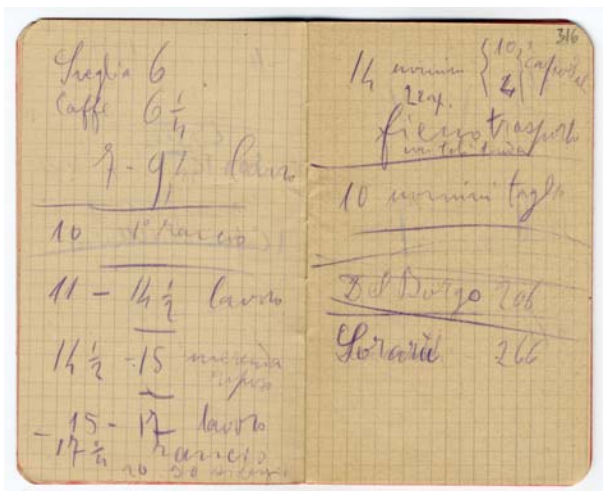 Sveglia 6
Caffè 6 1/4
7 - 9 1/2 lavoro
10 1° rancio
11 - 14 1/2 lavoro
14 1/2 - 15 merenda
riposo
15 - 17 lavoro
17 1/4 rancio
20 30 silenzio
316
14 uomini { 10 2 caporal
2 cap.
fieno trasporto
10 uomini taglio
Del Borgo 206
Soraru 266